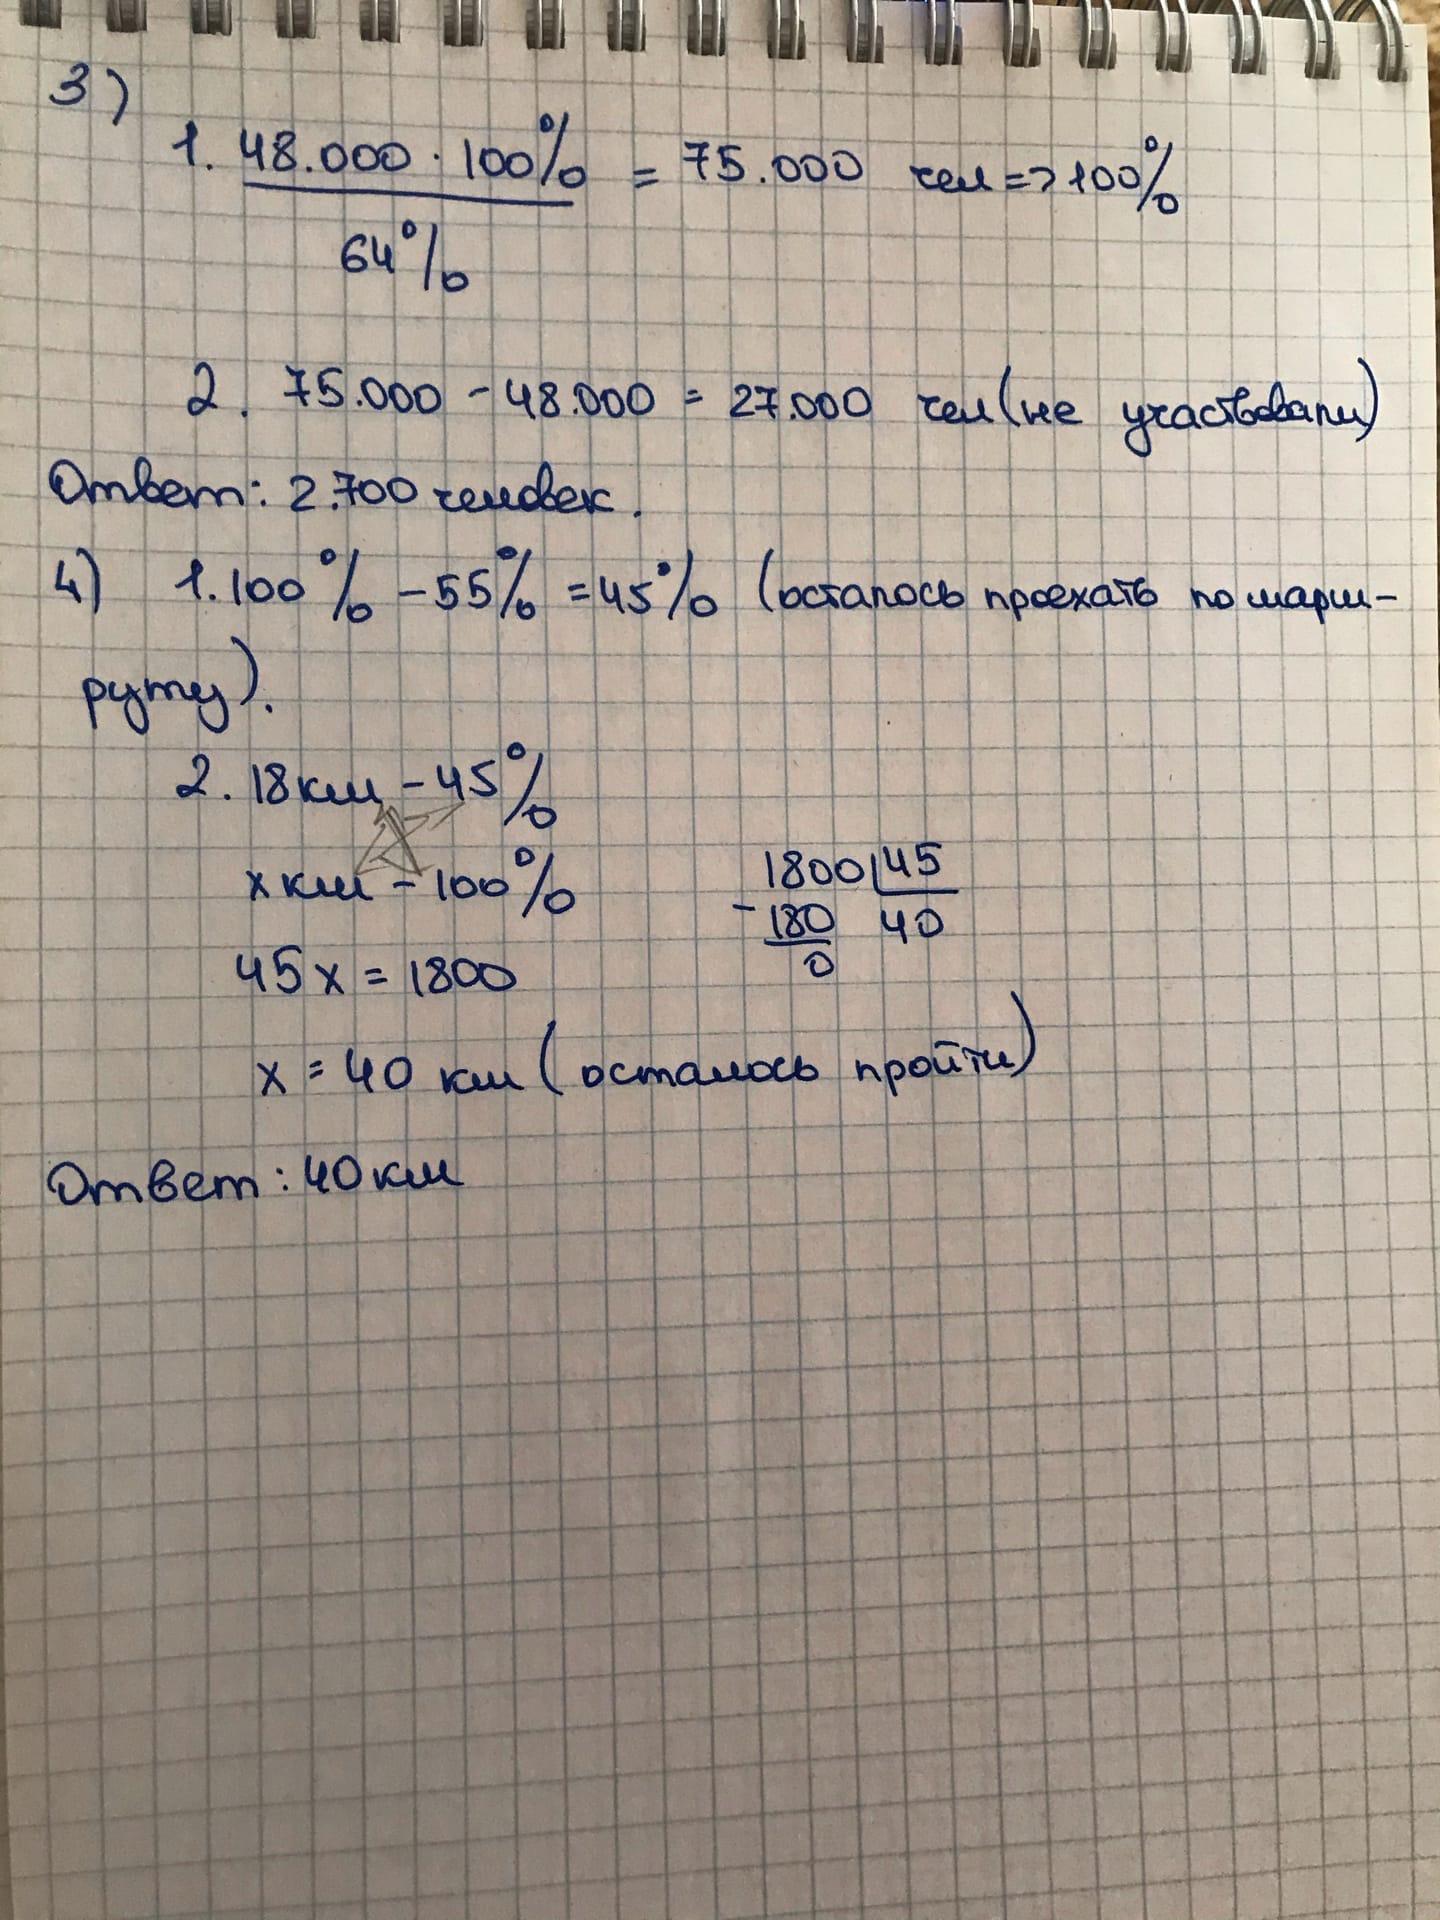 3)
1. 48.000 · 100% = 75.000 чел => 100%
64%
2. 75.000 - 48.000 = 27.000 чел (не участвовали)
Ответ: 2.700 человек.
4) 1. 100% - 55% = 45% (осталось проехать по марш-
руту).
2. 18 км - 45%
х км - 100%
1800 45
- 180 40
0
45 х = 1800
х = 40 км (осталось пройти)
Ответ: 40 км